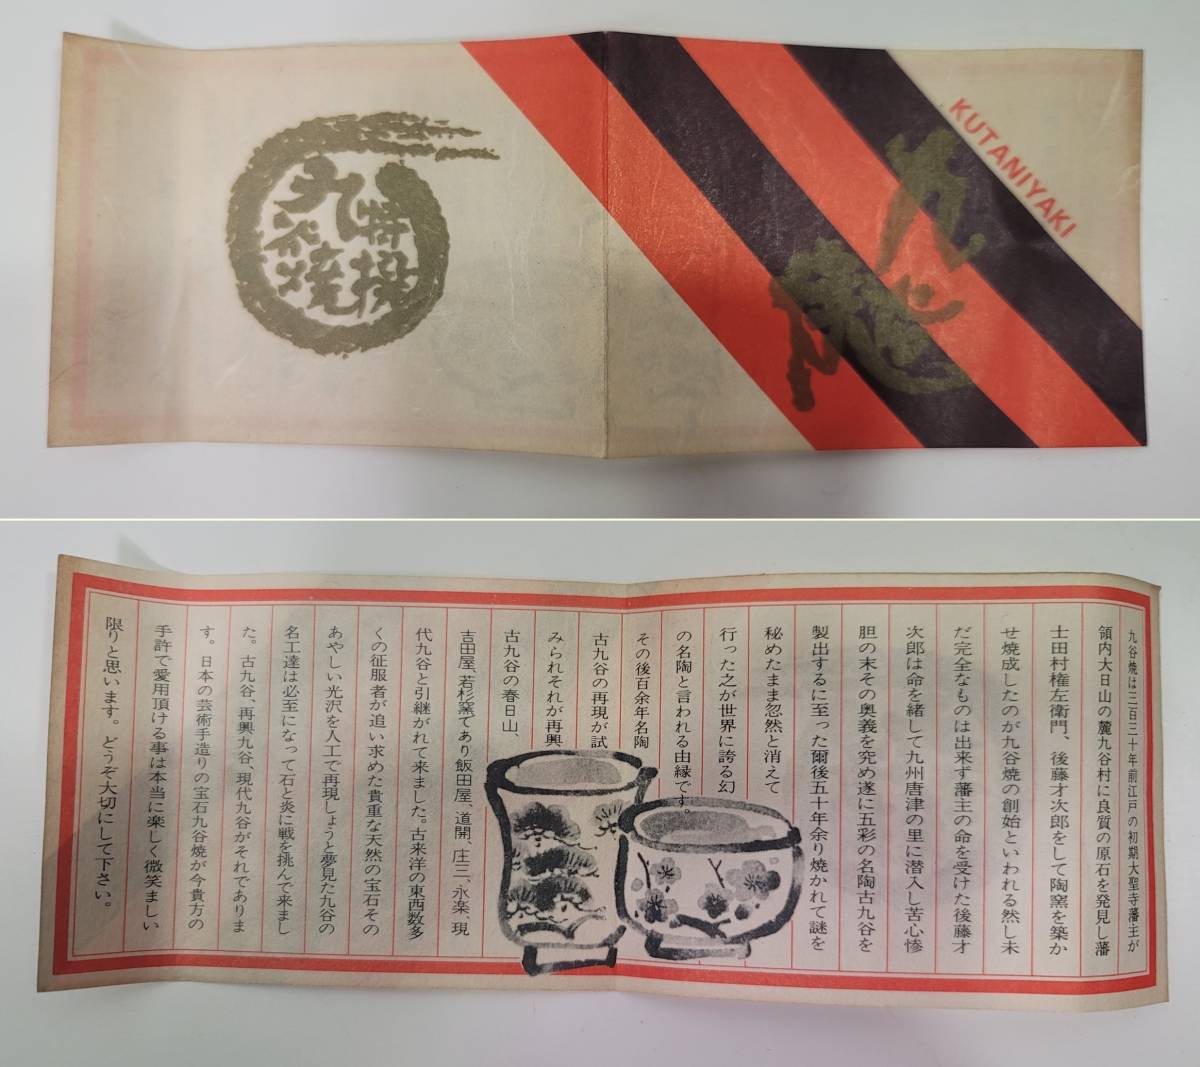 KUTANIYAKI
九谷焼
特撰
九谷焼
九谷焼は三百三十年前江戸の初期大聖寺藩主が
領内大日山の麓九谷村に良質の原石を発見し藩
士田村権左衛門、後藤才次郎をして陶窯を築か
せ焼成したのが九谷焼の創始といわれる然し未
だ完全なものは出来ず藩主の命を受けた後藤才
次郎は命を緒して九州唐津の里に潜入し苦心惨
胆の末その奥義を究め遂に五彩の名陶古九谷を
製出するに至った爾後五十年余り焼かれて謎を
秘めたまま忽然と消えて
行った之が世界に誇る幻
の名陶と言われる由縁です。
その後百余年名陶
古九谷の再現が試
みられそれが再興
古九谷の春日山、
吉田屋、若杉窯であり飯田屋、道開、庄三、永楽、現
代九谷と引継がれて来ました。古来洋の東西数多
くの征服者が追い求めた貴重な天然の宝石その
あやしい光沢を人工で再現しようと夢見た九谷の
名工達は必至になって石と炎に戦を挑んで来まし
た。古九谷、再興九谷、現代九谷がそれでありま
す。日本の芸術手造りの宝石九谷焼が今貴方の
手許で愛用頂ける事は本当に楽しく微笑ましい
限りと思います。どうぞ大切にして下さい。